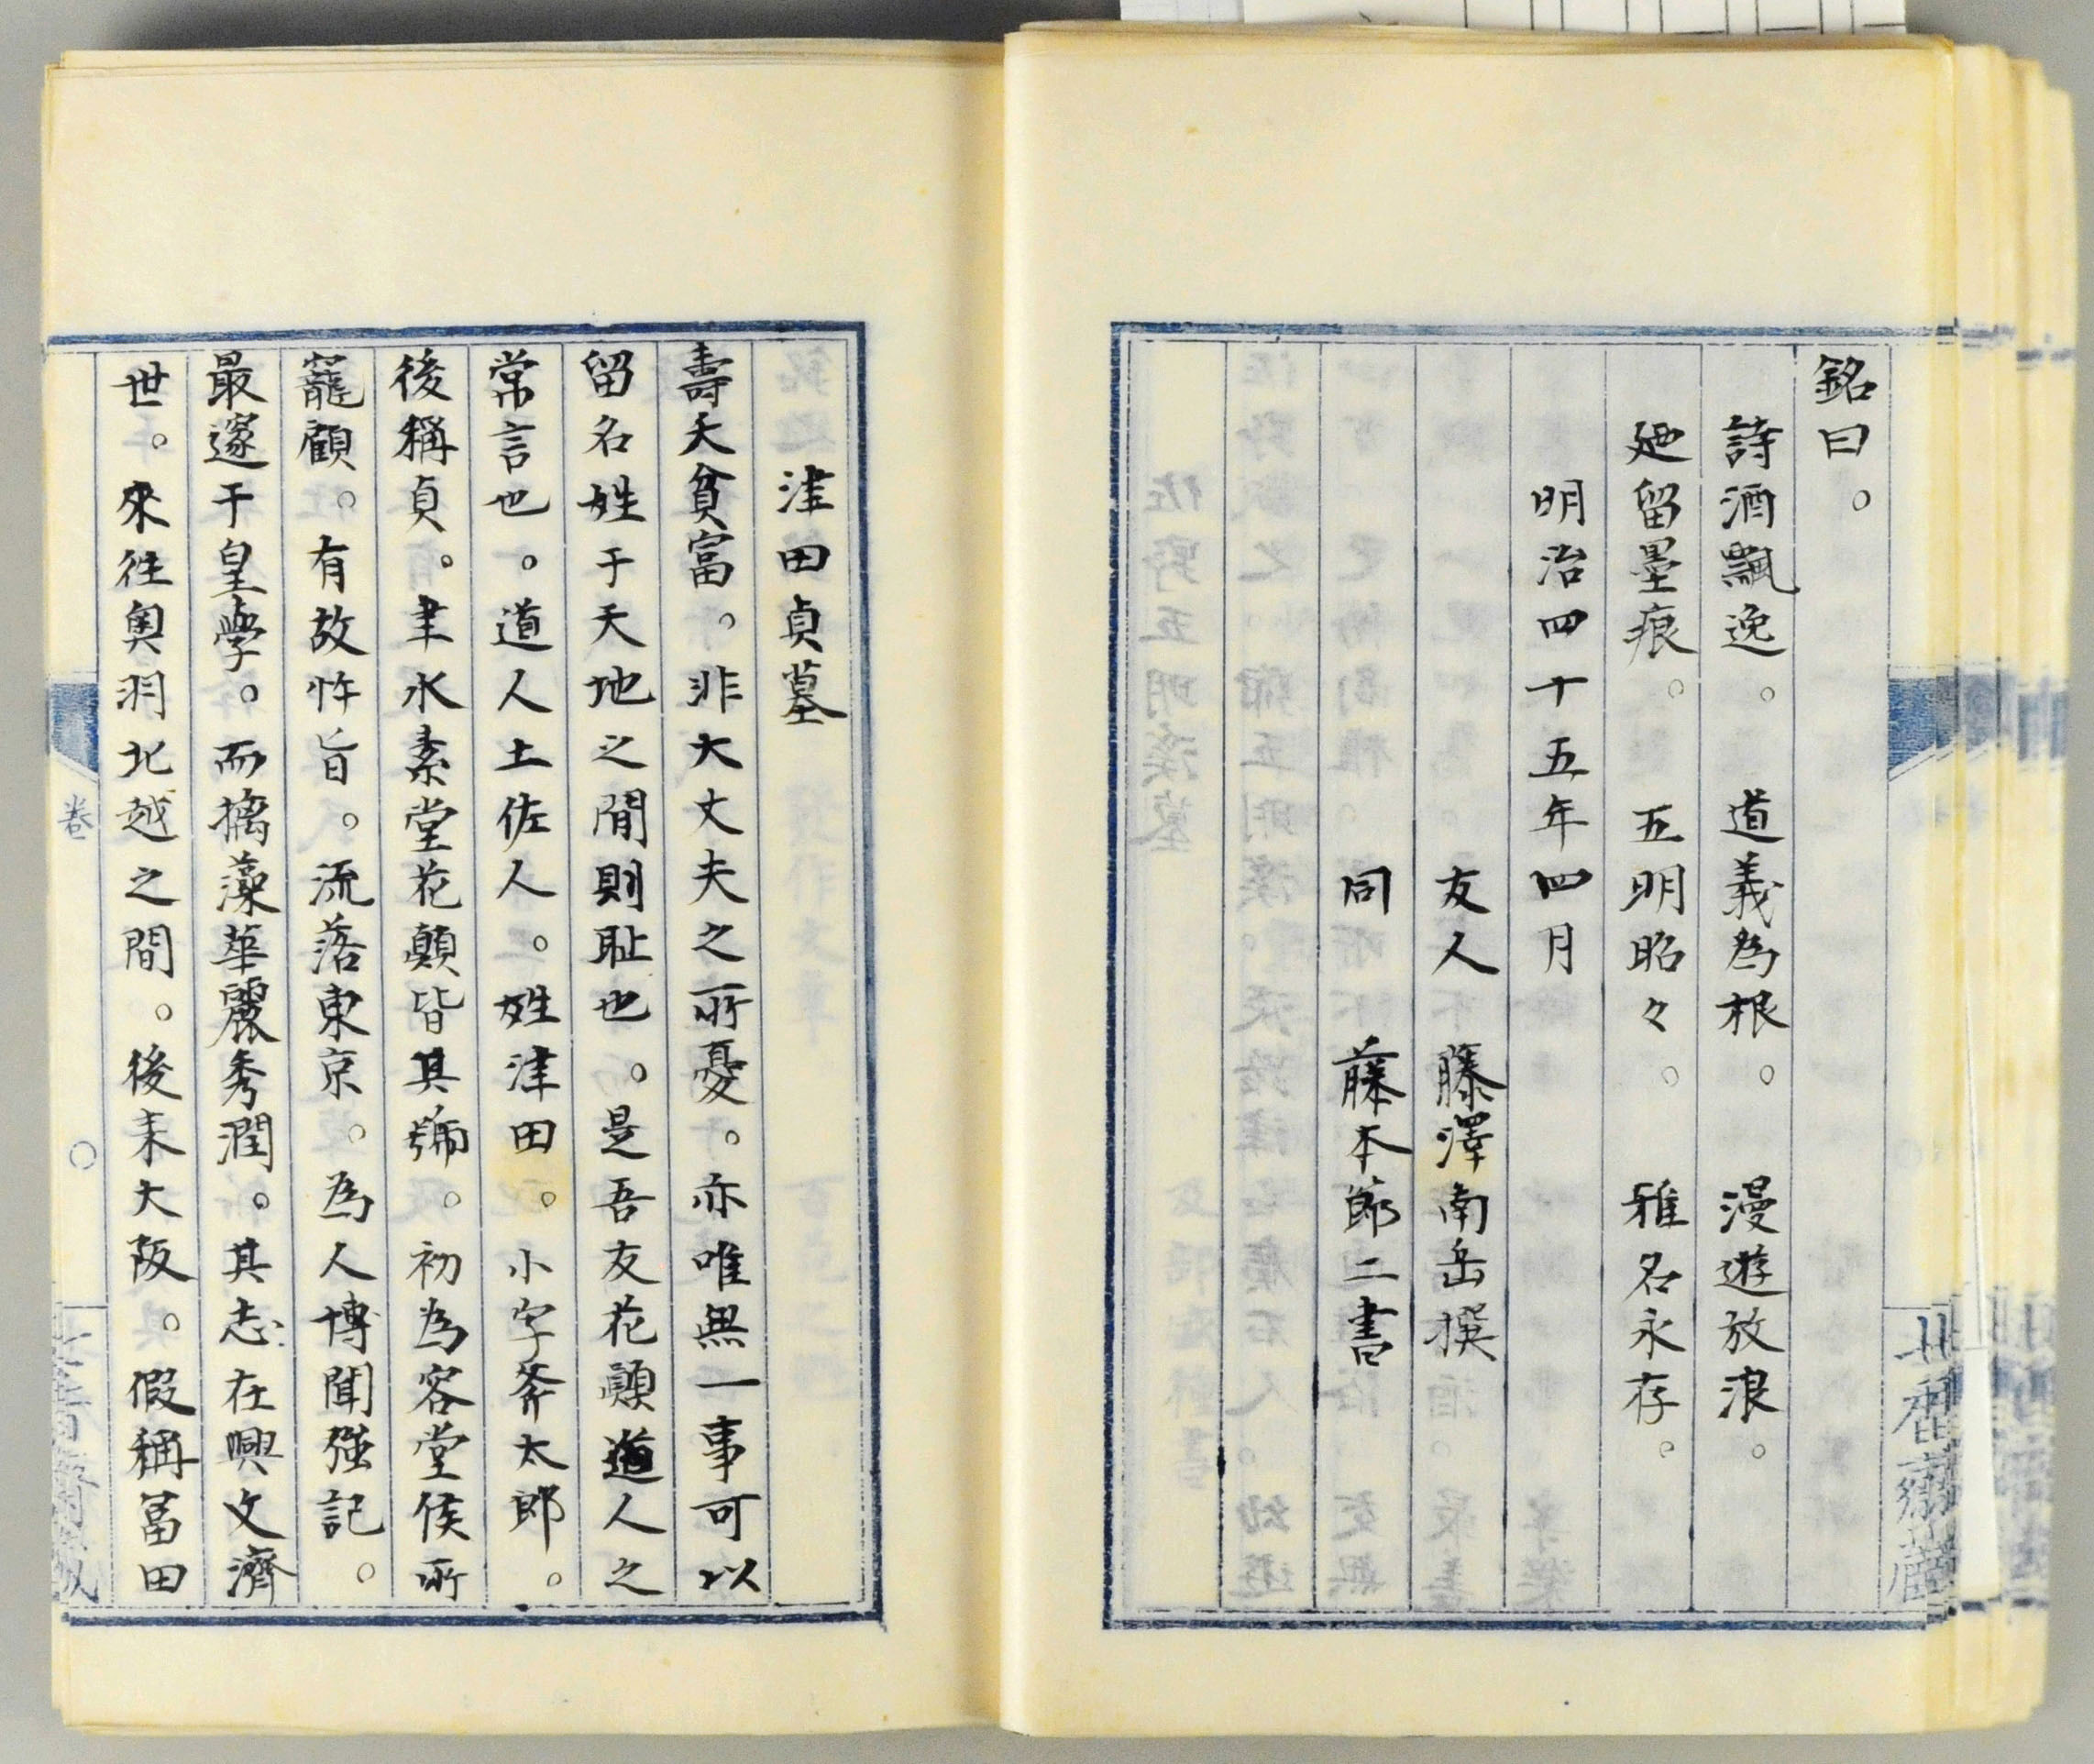 銘曰。
詩酒飄逸。道義為根。漫遊放浪。
廼留墨痕。五明昭々。雅名永存。
明治四十五年四月
友人 藤澤南岳撰
同 藤本節二書
津田貞墓
壽夭貧富。非大丈夫之所憂。亦唯無一事可以
留名姓于天地之間則耻也。是吾友花顛道人之
常言也。道人土佐人。姓津田。小字斧太郎。
後稱貞。聿水素堂花顛皆其號。初為容堂侯所
寵顧。有故忤旨。流落東京。為人博聞強記。
最邃于皇學。而摛藻華麗秀潤。其志在興文濟
世。來往奧羽北越之間。後来大阪。假稱冨田
卷